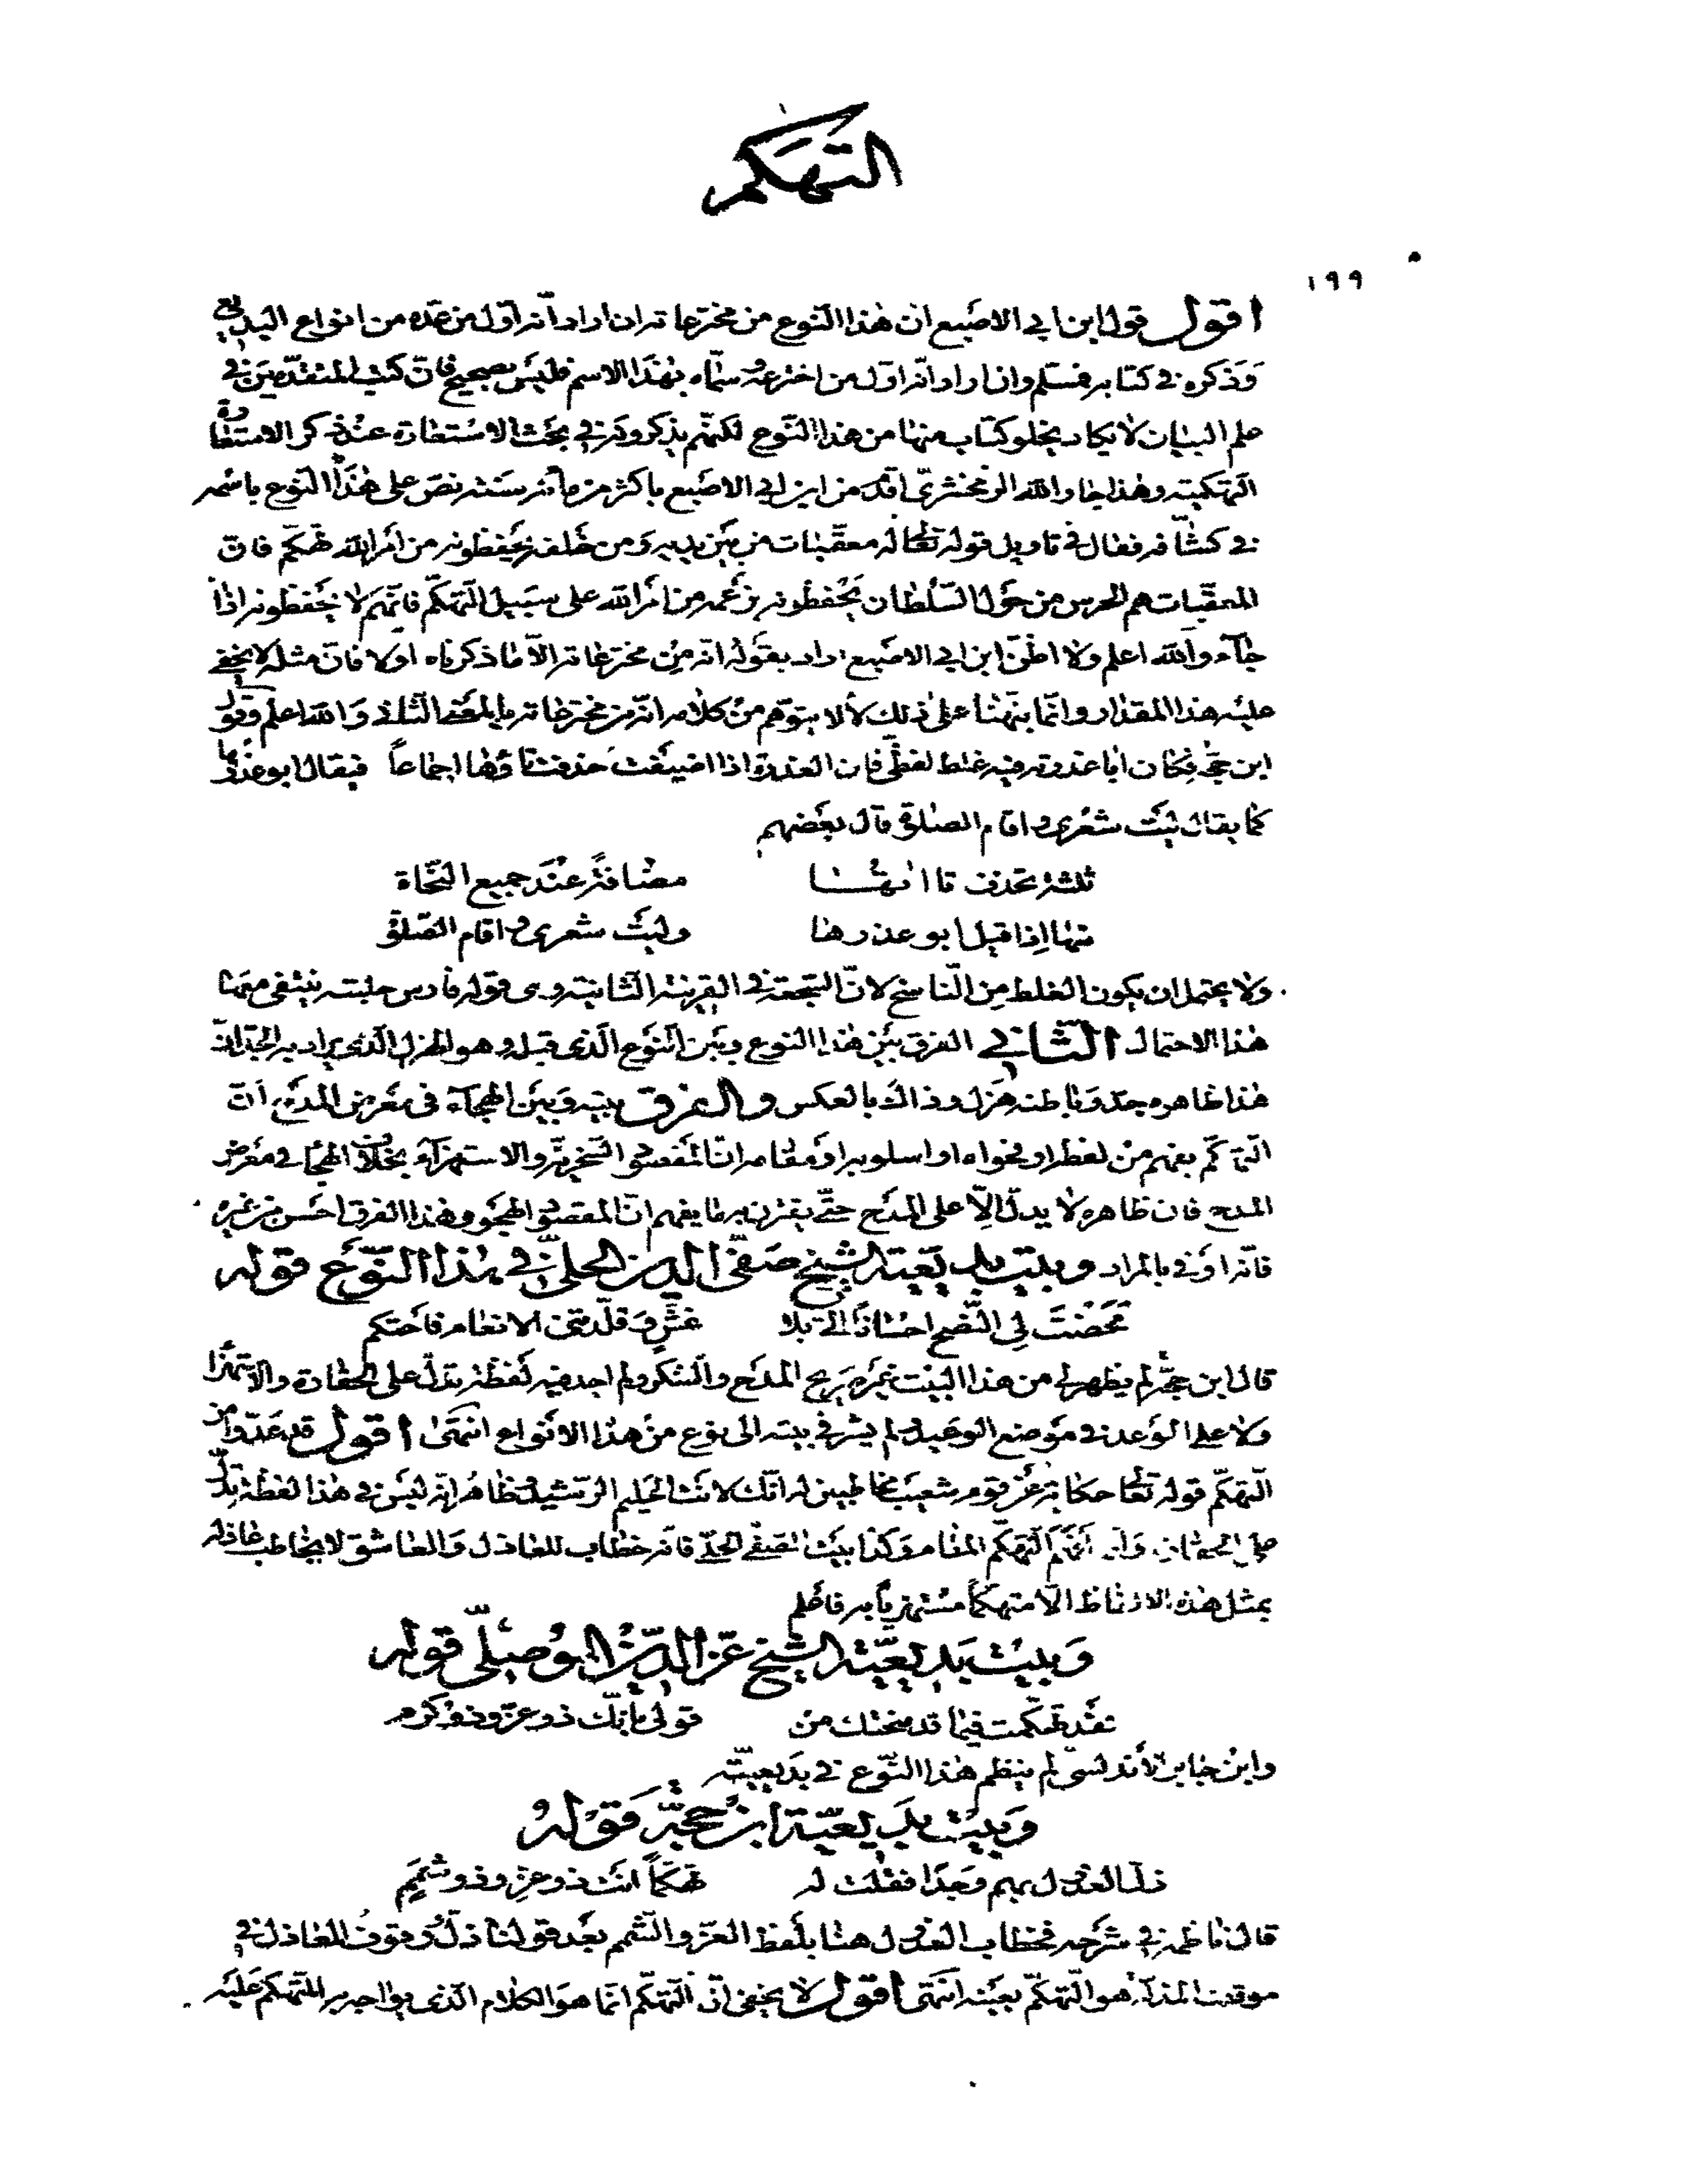 التهكم
١٩٩
اقول قول ابن ابي الاصبع ان هذا النوع من مخترعاته ان اراد انّه اوّل من عدّه من انواع البديع
وذكره في كتابه فمسلم وان اراد انّه اوّل من اخترعه وسمّاه بهذا الاسم فليس بصحيح فانّ كتب المتقدّمين في
علم البيان لا يكاد يخلو كتاب منها من هذا النّوع لكنّهم يذكرونه في بحث الاستعارة عند ذكر الاستعارة
التهكميّة وهذا جار الله الزمخشريّ اقدم من ابن ابي الاصبع باكثر من مائة سنة نصّ على هذا النّوع باسمه
في كشّافه فقال في تاويل قوله تعالى له معقّبات من بين يديه ومن خلفه يحفظونه من امر الله تهكّم فانّ
المعقّبات هم الحرس من حول السّلطان يحفظونه بزعمه من امر الله على سبيل التّهكّم فانّهم لا يحفظونه اذا
جآء والله اعلم ولا اظنّ ابن ابي الاصبع اراد بقوله انّه من مخترعاته الّا ما ذكرناه اولا فانّ مثله لا يخفى
عليه هذا المقدار وانّما نبّهنا على ذلك لئلا يتوهّم من كلامه انّه من مخترعاته بالمعنى الثاني والله اعلم وقول
ابن حجّة فكان ابا عذرته فيه غلط لفظيّ فان العذرة اذا اضيفت حذفت تاؤها اجماعاً فيقال ابو عذرها
كما يقال ليت شعري واقام الصلاة قال بعضهم
ثلثة تحذف تاآتها مضافةً عند جميع النّحاة
منها اذا قيل ابو عذرها وليت شعري واقام الصّلوة
ولا يحتمل ان يكون الغلط من النّاسخ لانّ السّجعة في القرينة الثّانية وهي قوله فارس حلبته ينتفي معها
هذا الاحتمال الثّاني الفرق بين هذا النوع وبين النّوع الّذي قبله وهو الهزل الّذي يراد به الجدّ انّ
هذا ظاهره جدّ وباطنه هزل وذاك بالعكس والفرق بينه وبين الهجآء في معرض المدح انّ
التهكّم يفهم من لفظه او فحواه او اسلوبه او مقامه انّ المقصود السّخرية والاستهزآء بخلاف الهجا في معرض
المدح فان ظاهره لا يدلّ الّا على المدح حتّى يقترن به ما يفهم انّ المقصود الهجو وهذا الفرق احسن من غيره
فانّه اوفى بالمراد وبيت بديعيّة الشيخ صفيّ الدين الحلّيّ في هذا النّوع قوله
محّضت لي النّصح احسانا اليّ بلا غشٍّ وقلّدتني الانعام فاحتكم
قال ابن حجّة لم يظهر لي من هذا البيت غير صريح المدح والشكر ولم اجد فيه لفظة تدلّ على الحقارة والاستهزا
ولا على الوعد في موضع الوعيد ولم يشر في بيته الى نوع من هذا الانواع انتهى اقول قد عدّوا من
التهكّم قوله تعالى حكاية عن قوم شعيب مخاطبين له انّك لانت الحليم الرّشيد وظاهر انّه ليس في هذا لفظة تدلّ
على الحقارة وانّما افهم التهكّم المقام وكذا بيت الصفيّ الحلّي فانّه خطاب للعاذل والعاشق لا يخاطب عاذله
بمثل هذه الالفاظ الّا متهكّماً مستهزياً به فاعلم
وبيت بديعيّة الشيخ عزّ الدّين الموصليّ قوله
لقد تهكّمت فيما قد منحتك من قولي بانّك ذو عزّ وذو كرم
وابن جابر الاندلسيّ لم ينظم هذا النّوع في بديعيّته
وبيت بديعيّة ابن حجّة قوله
ذلّ العذول بهم وجدا فقلت له تهكّماً انت ذو عزّ وذو شمم
قال ناظمه في شرحه فخطاب العذول هنا بلفظ العزّ والشّمم بعد قولنا ذلّ وقوف العاذل في
موقف المذلّة هو التّهكّم بعينه انتهى اقول لا يخفى انّ التّهكّم انّما هو الكلام الّذي يواجه به المتهكّم عليه